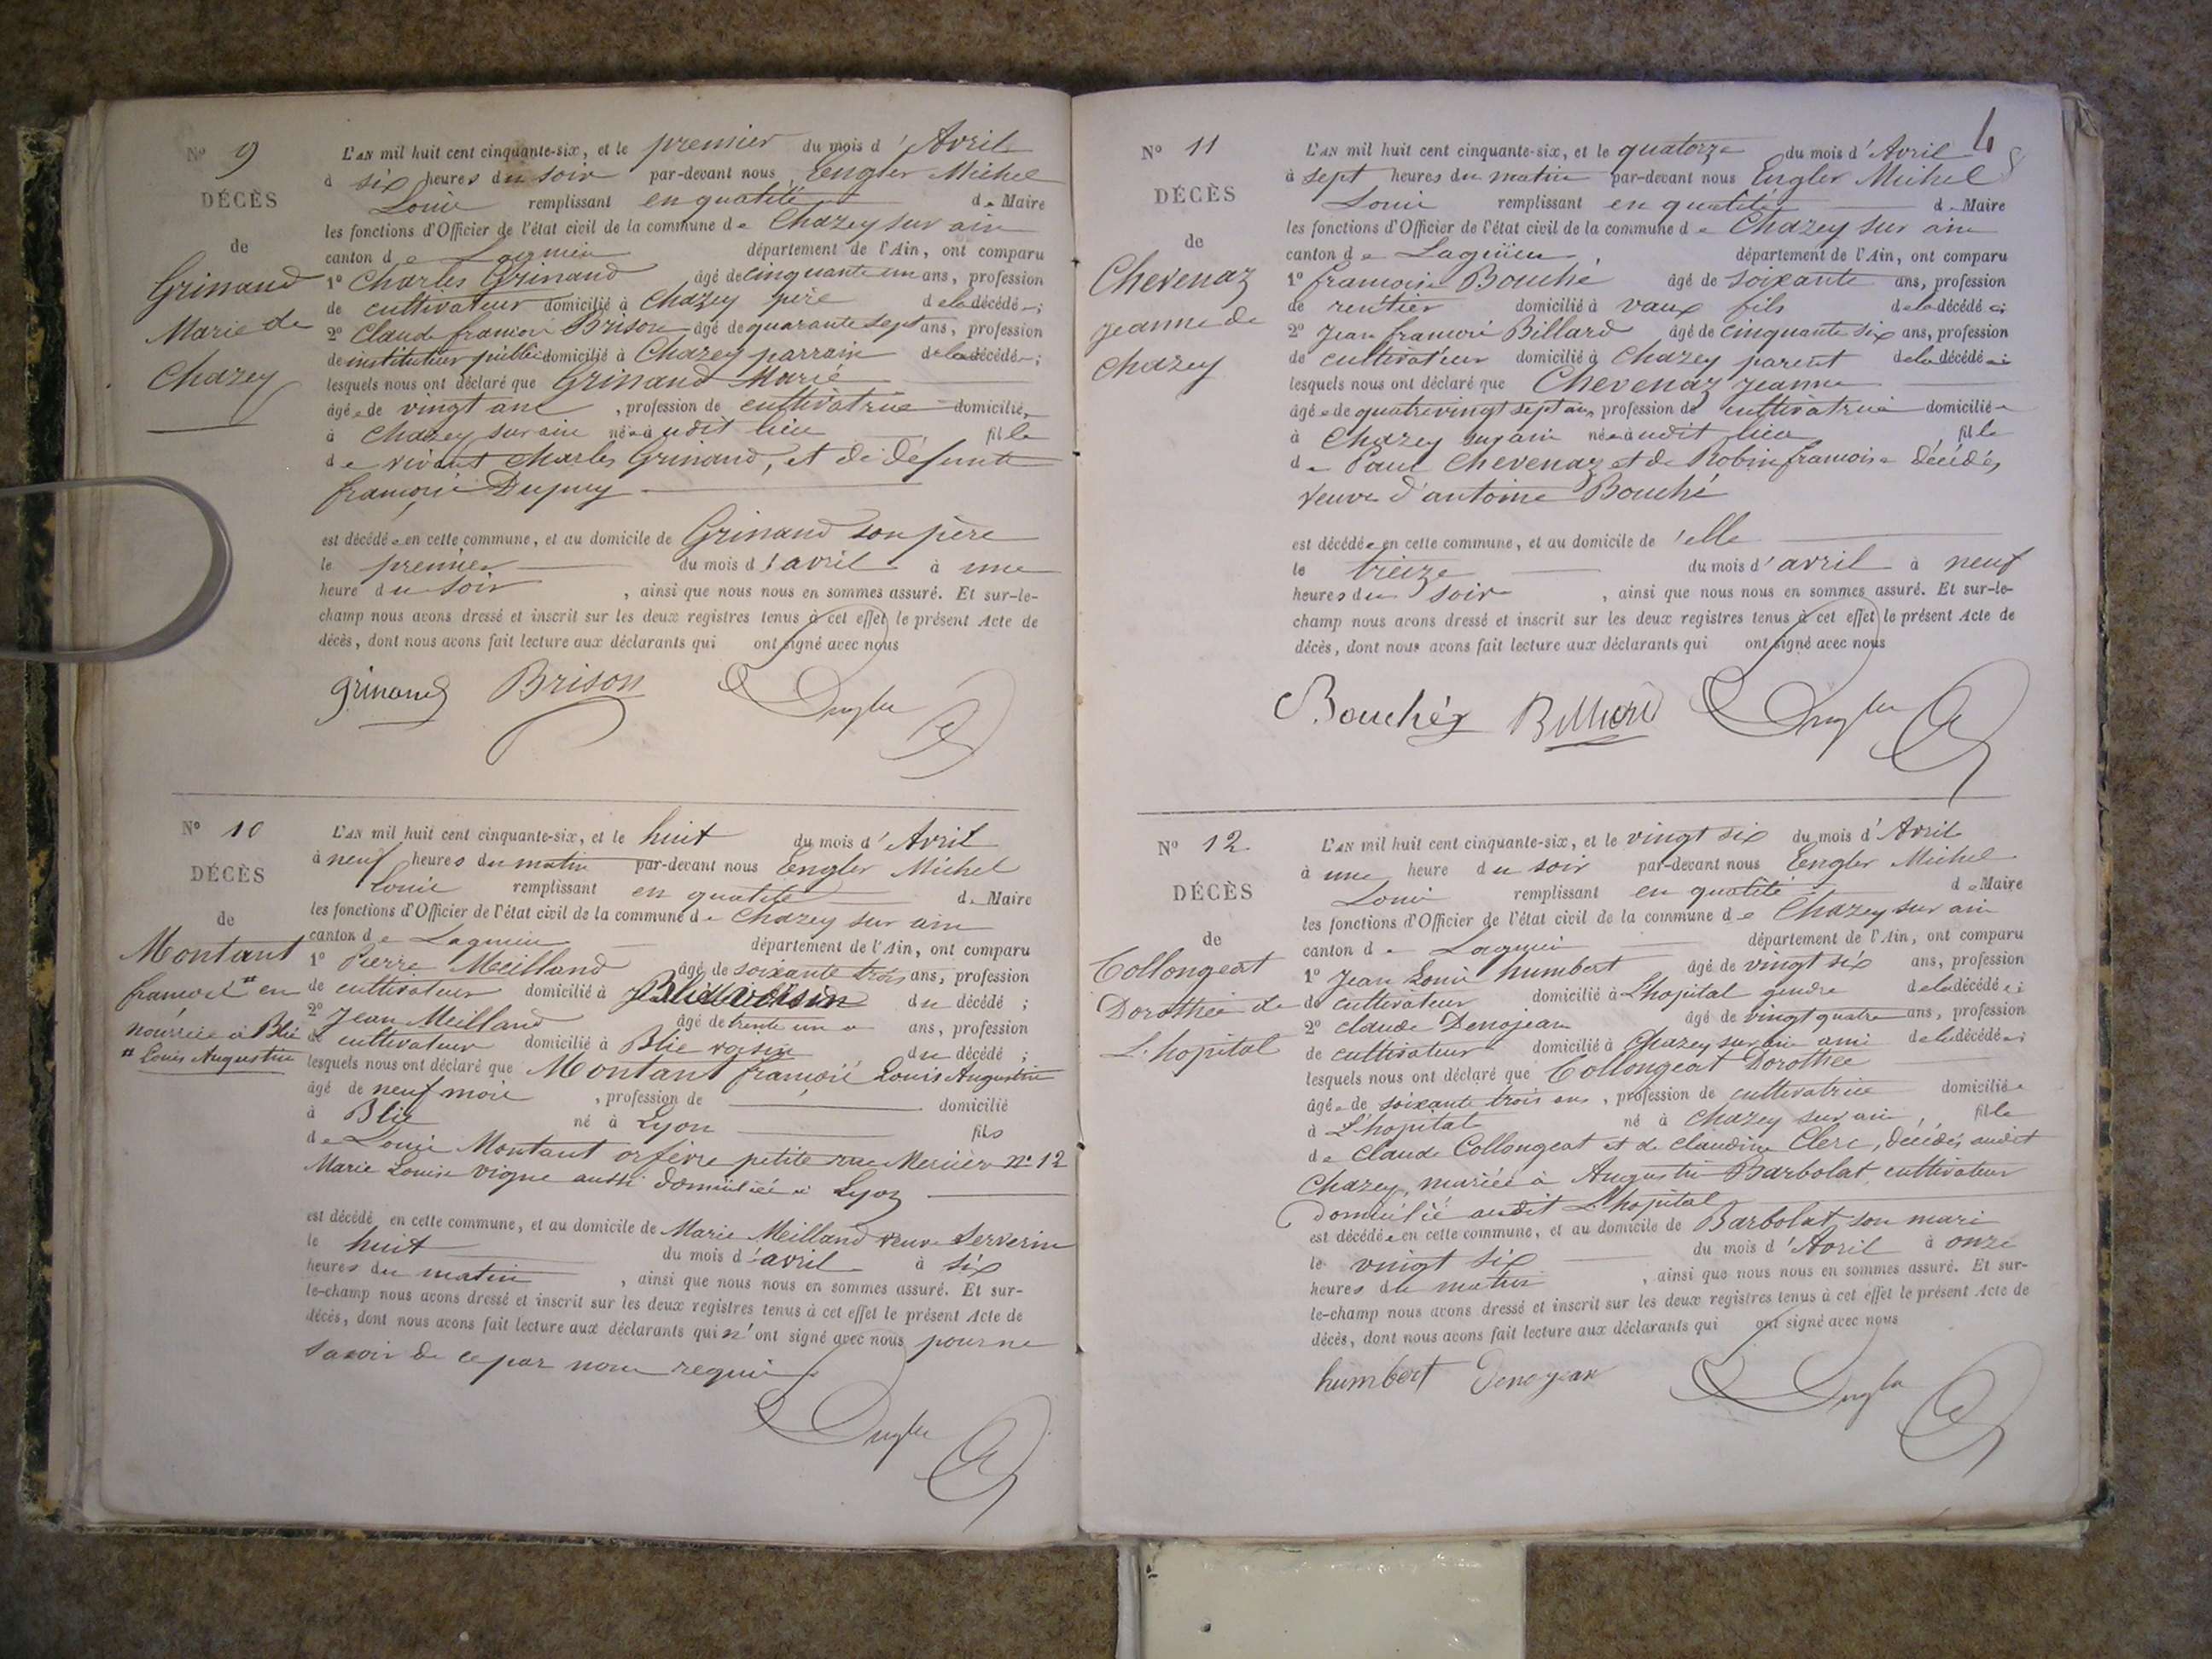 N° 9
DÉCÈS
de
Grinand
Marie de
Chazey
L'AN mil huit cent cinquante-six, et le premier du mois d'Avril
à six heures du soir par-devant nous Engler Michel
Louis remplissant en qualité de Maire
les fonctions d'Officier de l'état civil de la commune de Chazey sur ain
canton de Lagnieu département de l'Ain, ont comparu
1° Charles Grinand âgé de cinquante un ans, profession
de cultivateur domicilié à Chazey père de la décédée;
2° Claude françois Brison âgé de quarante sept ans, profession
de instituteur public domicilié à Chazey parrain de la décédée;
lesquels nous ont déclaré que Grinand Marie
âgée de vingt ans, profession de cultivatrice domiciliée
à Chazey sur ain née audit lieu fille
de vivant Charles Grinand, et de défunte
françoise Dupuy
est décédée en cette commune, et au domicile de Grinand son père
le premier du mois d'avril à une
heure du soir, ainsi que nous nous en sommes assuré. Et sur-le-
champ nous avons dressé et inscrit sur les deux registres tenus à cet effet le présent Acte de
décès, dont nous avons fait lecture aux déclarants qui ont signé avec nous
Grinand Brison Engler
N° 10
DÉCÈS
de
Montant
françois # en
nourrice à Blie
# Louis Augustin
L'AN mil huit cent cinquante-six, et le huit du mois d'Avril
à neuf heures du matin par-devant nous Engler Michel
Louis remplissant en qualité de Maire
les fonctions d'Officier de l'état civil de la commune de Chazey sur ain
canton de Lagnieu département de l'Ain, ont comparu
1° Pierre Meilland âgé de soixante trois ans, profession
de cultivateur domicilié à Blie voisin du décédé;
2° Jean Meilland âgé de trente un ans, profession
de cultivateur domicilié à Blie voisin du décédé;
lesquels nous ont déclaré que Montant françois Louis Augustin
âgé de neuf mois, profession de domicilié
à Blie né à Lyon fils
de Louis Montant orfèvre petite rue Mercier n° 12
Marie Louise vigne aussi domiciliée à Lyon
est décédé en cette commune, et au domicile de Marie Meilland veuve Serverin
le huit du mois d'avril à six
heures du matin, ainsi que nous nous en sommes assuré. Et sur-
le-champ nous avons dressé et inscrit sur les deux registres tenus à cet effet le présent Acte de
décès, dont nous avons fait lecture aux déclarants qui n'ont signé avec nous pour ne
savoir de ce par nous requis
Engler
N° 11
DÉCÈS
de
Chevenaz
jeanne de
Chazey
L'AN mil huit cent cinquante-six, et le quatorze du mois d'Avril
à sept heures du matin par-devant nous Engler Michel
Louis remplissant en qualité de Maire
les fonctions d'Officier de l'état civil de la commune de Chazey sur ain
canton de Lagnieu département de l'Ain, ont comparu
1° françois Bouché âgé de soixante ans, profession
de rentier domicilié à vaux fils de la décédée;
2° Jean françois Billard âgé de cinquante six ans, profession
de cultivateur domicilié à Chazey parent de la décédée;
lesquels nous ont déclaré que Chevenaz jeanne
âgée de quatre vingt sept ans, profession de cultivatrice domiciliée
à Chazey sur ain née audit lieu fille
de Paul Chevenaz et de Robin françoise décédés
veuve d'antoine Bouché
est décédée en cette commune, et au domicile d'elle
le treize du mois d'avril à neuf
heures du soir, ainsi que nous nous en sommes assuré. Et sur-le-
champ nous avons dressé et inscrit sur les deux registres tenus à cet effet le présent Acte de
décès, dont nous avons fait lecture aux déclarants qui ont signé avec nous
Bouchéz Billiard Engler
N° 12
DÉCÈS
de
Collongeat
Dorothée de
L'hopital
L'AN mil huit cent cinquante-six, et le vingt six du mois d'Avril
à une heure du soir par-devant nous Engler Michel
Louis remplissant en qualité de Maire
les fonctions d'Officier de l'état civil de la commune de Chazey sur ain
canton de Lagnieu département de l'Ain, ont comparu
1° Jean Louis humbert âgé de vingt six ans, profession
de cultivateur domicilié à L'hopital gendre de la décédée;
2° claude Denojean âgé de vingt quatre ans, profession
de cultivateur domicilié à Chazey sur ain ami de la décédée;
lesquels nous ont déclaré que Collongeat Dorothée
âgée de soixante trois ans, profession de cultivatrice domiciliée
à L'hopital né à Chazey sur ain, fille
de Claude Collongeat et de claudine Clerc, décédés audit
Chazey, mariée à Augustin Barbolat cultivateur
domicilié audit L'hopital
est décédée en cette commune, et au domicile de Barbolat son mari
le vingt six du mois d'Avril à onze
heures du matin, ainsi que nous nous en sommes assuré. Et sur-
le-champ nous avons dressé et inscrit sur les deux registres tenus à cet effet le présent Acte de
décès, dont nous avons fait lecture aux déclarants qui ont signé avec nous
humbert Denojean Engler